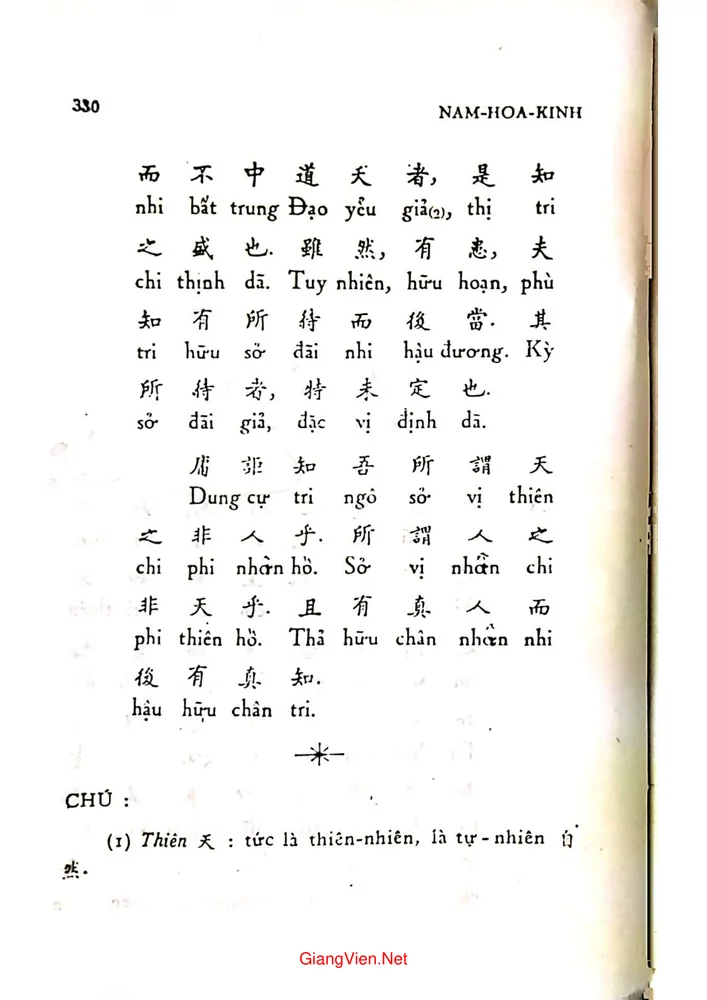 330
NAM-HOA-KINH
而 不 中 道 夭 者, 是 知
nhi bất trung Đạo yểu giả(2), thị tri
之 盛 也. 雖 然, 有 患, 夫
chi thịnh dã. Tuy nhiên, hữu hoạn, phù
知 有 所 待 而 後 當. 其
tri hữu sở đãi nhi hậu đương. Kỳ
所 待 者, 特 未 定 也.
sở đãi giả, đặc vị định dã.
庸 詎 知 吾 所 謂 天
Dung cự tri ngô sở vị thiên
之 非 人 乎. 所 謂 人 之
chi phi nhân hồ. Sở vị nhân chi
非 天 乎. 且 有 真 人 而
phi thiên hồ. Thả hữu chân nhân nhi
後 有 真 知.
hậu hữu chân tri.
CHÚ :
(1) Thiên 天 : tức là thiên-nhiên, là tự-nhiên 自
然.
GiangVien.Net